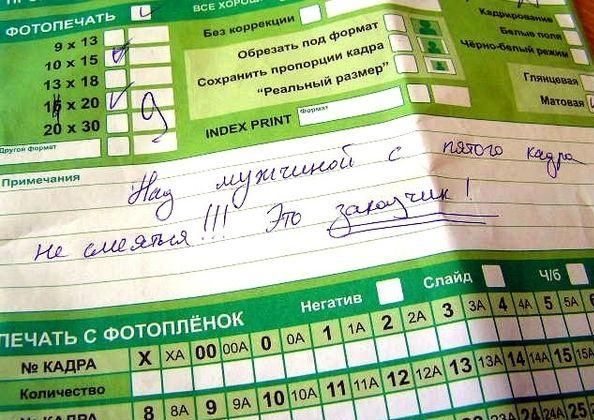 ФОТОПЕЧАТЬ
ВСЕ ХОРОШ
Без коррекции
Кадрирование
9 x 13
Обрезать под формат
Белые поля
10 x 15
Сохранить пропорции кадра
Чёрно-белый режим
13 x 18
"Реальный размер"
Глянцевая
x 20 9
Матовая
20 x 30
INDEX PRINT
Формат
Другой формат
Примечания
Над мужчиной с пятого кадра
не смеяться!!! Это заказчик!
Негатив
Слайд
Ч/б
ПЕЧАТЬ С ФОТОПЛЁНОК
№ КАДРА X XA 00 00A 0 0A 1 1A 2 2A 3 3A 4 4A 5 5A 6
Количество
№ КАДРА 8 8A 9 9A 10 10A 11 11A 12 12A 13 13A 14 14A 15 15A
Количество
24 24A 25